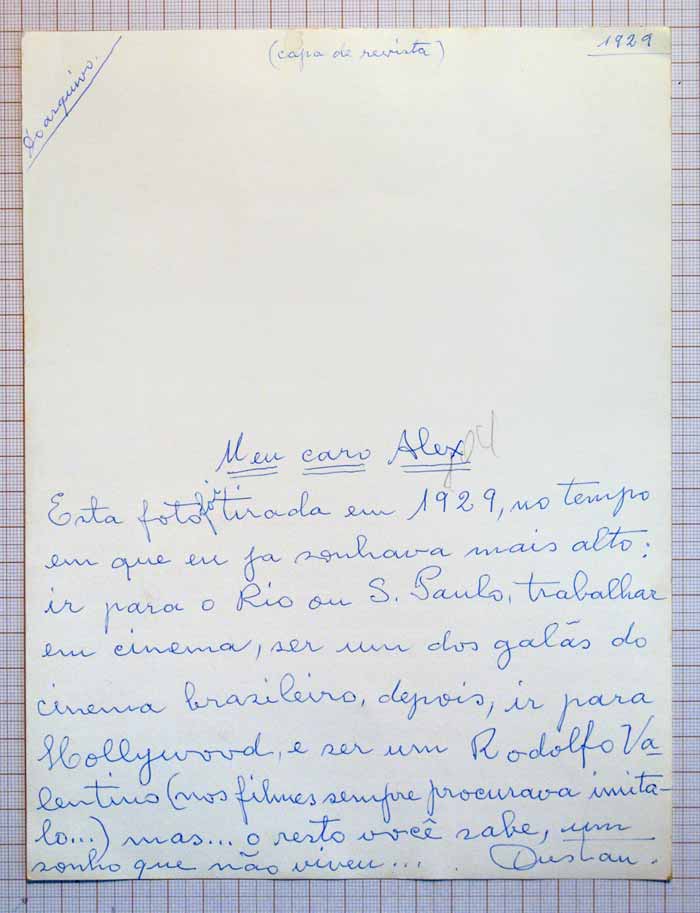 (capa de revista)
1929
Do arquivo.
Meu caro Alex
Esta foto foi tirada em 1929, no tempo
em que eu ja sonhava mais alto:
ir para o Rio ou S. Paulo, trabalhar
em cinema, ser um dos galãs do
cinema brasileiro, depois, ir para
Hollywood, e ser um Rodolfo Va-
lentino (nos filmes sempre procurava imita-
lo...) mas... o resto você sabe, um
sonho que não viveu... Dustan.